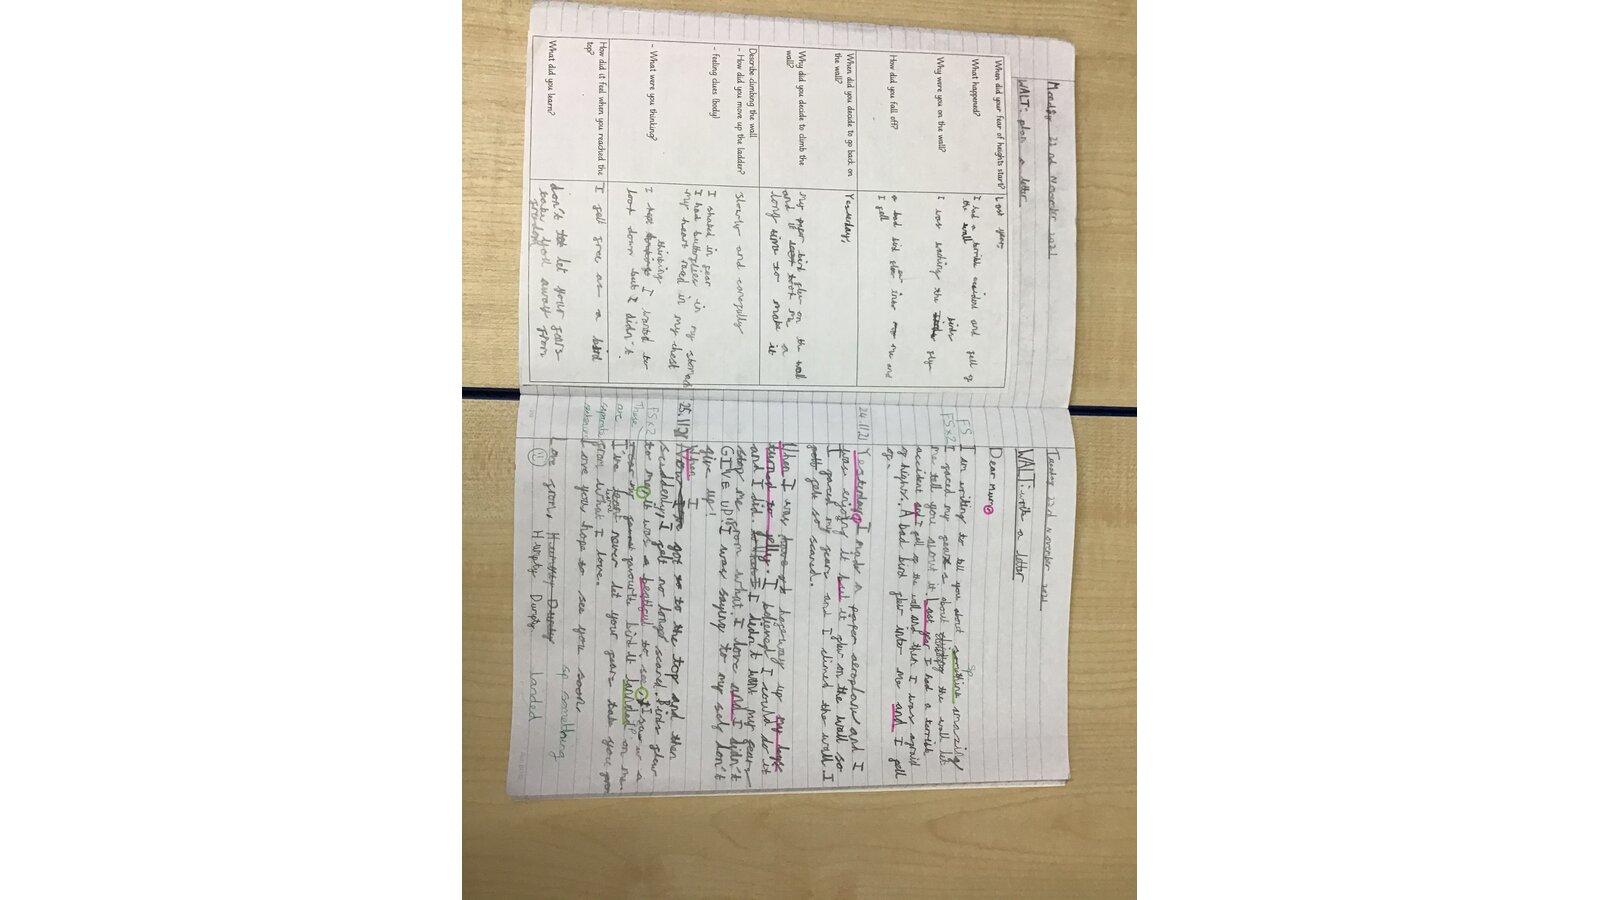 Monday 22nd November 2021
WALT: plan a letter
When did your fear of heights start?
Last year,
What happened?
I had a terrible accident and fell of
the wall
Why were you on the wall?
birds
I was waching the fly
How did you fall off?
a bad bird flew into me and
I fell
When did you decide to go back on
the wall?
Yesterday,
Why did you decide to climb the
wall?
my paper bird flew on the wall
and it took me a
long time to make it
Describe climbing the wall
- How did you move up the ladder?
slowly and carefully
- feeling clues (body)
I shaked in fear
I had butterflies in my stomach
my heart raced in my chest
- What were you thinking?
thinking
I kept I wanted to
look down but I didn't
How did it feel when you reached the
top?
I felt free as a bird
What did you learn?
don't let your fears
take you away from
freedom
Tuesday 23rd November 2021
WALT: write a letter
Dear Mum
FS
FS x2
sp
I am writing to tell you about something amazing
I faced my fears about the wall let
me tell you about it. Last year I had a terribh
accident and I fell of the wall and then I was afraid
of highs. A bad bird flew into me and I fell
of.
24.11.21
Yesterday, I made a paper aeroplane and I
was enjoying it but it flew on the wall so
I faced my fears and I climed the wall. I
felt so scared.
When I was halfway up my legs
turned to jelly. I believed I could do it
and I did. I didn't want my fears
stop me from what I love and I didn't
GIVE UP! I was saying to my self don't
give up!
25.11.21
When I
got to the top and then
suddenly, I felt no longer scared. Birds flew
FS x2
These
are
separate
sentences
to me it was a beatiful to see I saw a
favourite bird it landed on me.
sp
I've learnt never let your fears take you from
from what I love.
Love you hope to see you soon
Love from, Humpty Dumpty
Humpty Dumpty
sp something
landed